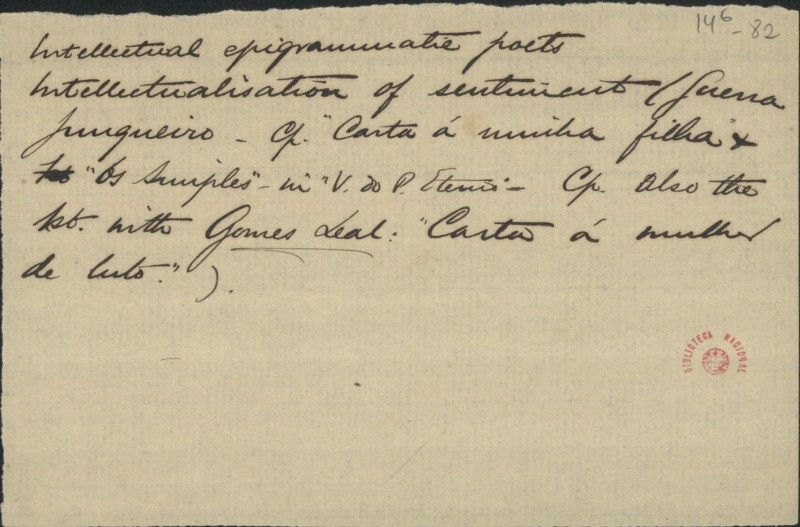 14⁶-82
Intellectual epigrammatic poets
Intellectualisation of sentiment (Guerra
Junqueiro – Cp. "Carta á minha filha" &
"Os Simples" – in "V. do P. Eterno" – Cp. also the
1st. with Gomes Leal: "Carta á mulher
de luto.").
BIBLIOTECA NACIONAL